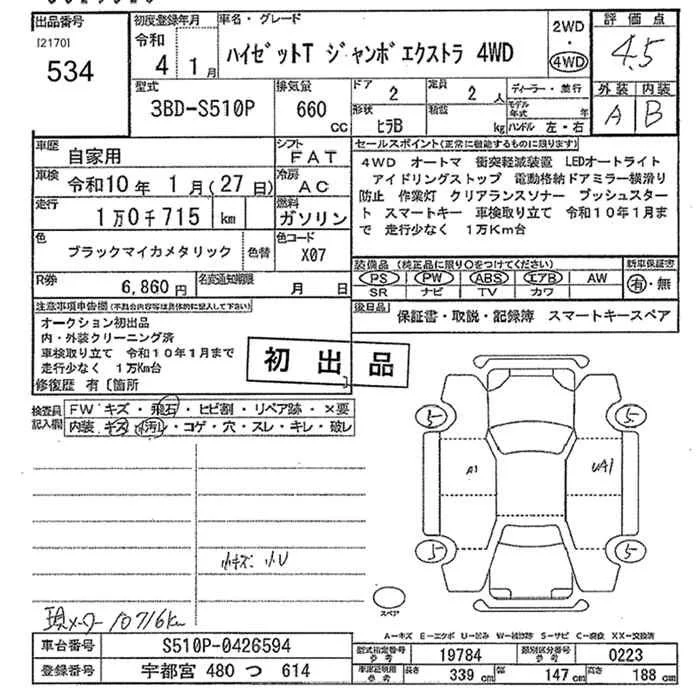 出品番号
[2170]
534
初度登録年月
令和
4 1月
車名・グレード
ハイゼットT ジャンボエクストラ 4WD
2WD
・
4WD
評価点
4.5
外装 内装
A B
型式
3BD-S510P
排気量
660
CC
ドア
2
定員
2 人
形状
ヒラB
積載
kg
ディーラー・並行
モデル年式 年
ハンドル 左・右
車歴
自家用
シフト
FAT
車検
令和10年 1月(27日)
冷房
AC
走行
1万0千715 km
燃料
ガソリン
色
ブラックマイカメタリック
色替
色コード
X07
R券
6,860円
名変通知期限
月 日
セールスポイント(正常に機能するものに限ります)
4WD オートマ 衝突軽減装置 LEDオートライト
アイドリングストップ 電動格納ドアミラー横滑り
防止 作業灯 クリアランスソナー プッシュスター
ト スマートキー 車検取り立て 令和10年1月ま
で 走行少なく 1万Km台
装備品(純正品に限り○をつけてください)
PS PW ABS エアB AW
SR ナビ TV カワ
新車保証書
有・無
後日品
保証書・取説・記録簿 スマートキースペア
注意事項申告欄(不具合内容等は具体的に記入して下さい)
オークション初出品
内・外装クリーニング済
車検取り立て 令和10年1月まで
走行少なく 1万Km台
修復歴 有〔箇所 〕
初出品
検査員記入欄
FW キズ・飛石・ヒビ割・リペア跡・×要
内装 キズ・汚れ・コゲ・穴・スレ・キレ・破レ
5 5
A1 UA1
5 5
小キズ・小U
現メーター 10716km
スペア
A-キズ E-エクボ U-凹み W-補修跡 S-サビ C-腐食 XX-交換済
車台番号
S510P-0426594
登録番号
宇都宮 480 つ 614
型式指定番号
参考
19784
類別区分番号
参考
0223
車庫証明用
参考
長さ 339 cm
幅 147 cm
高さ 188 cm